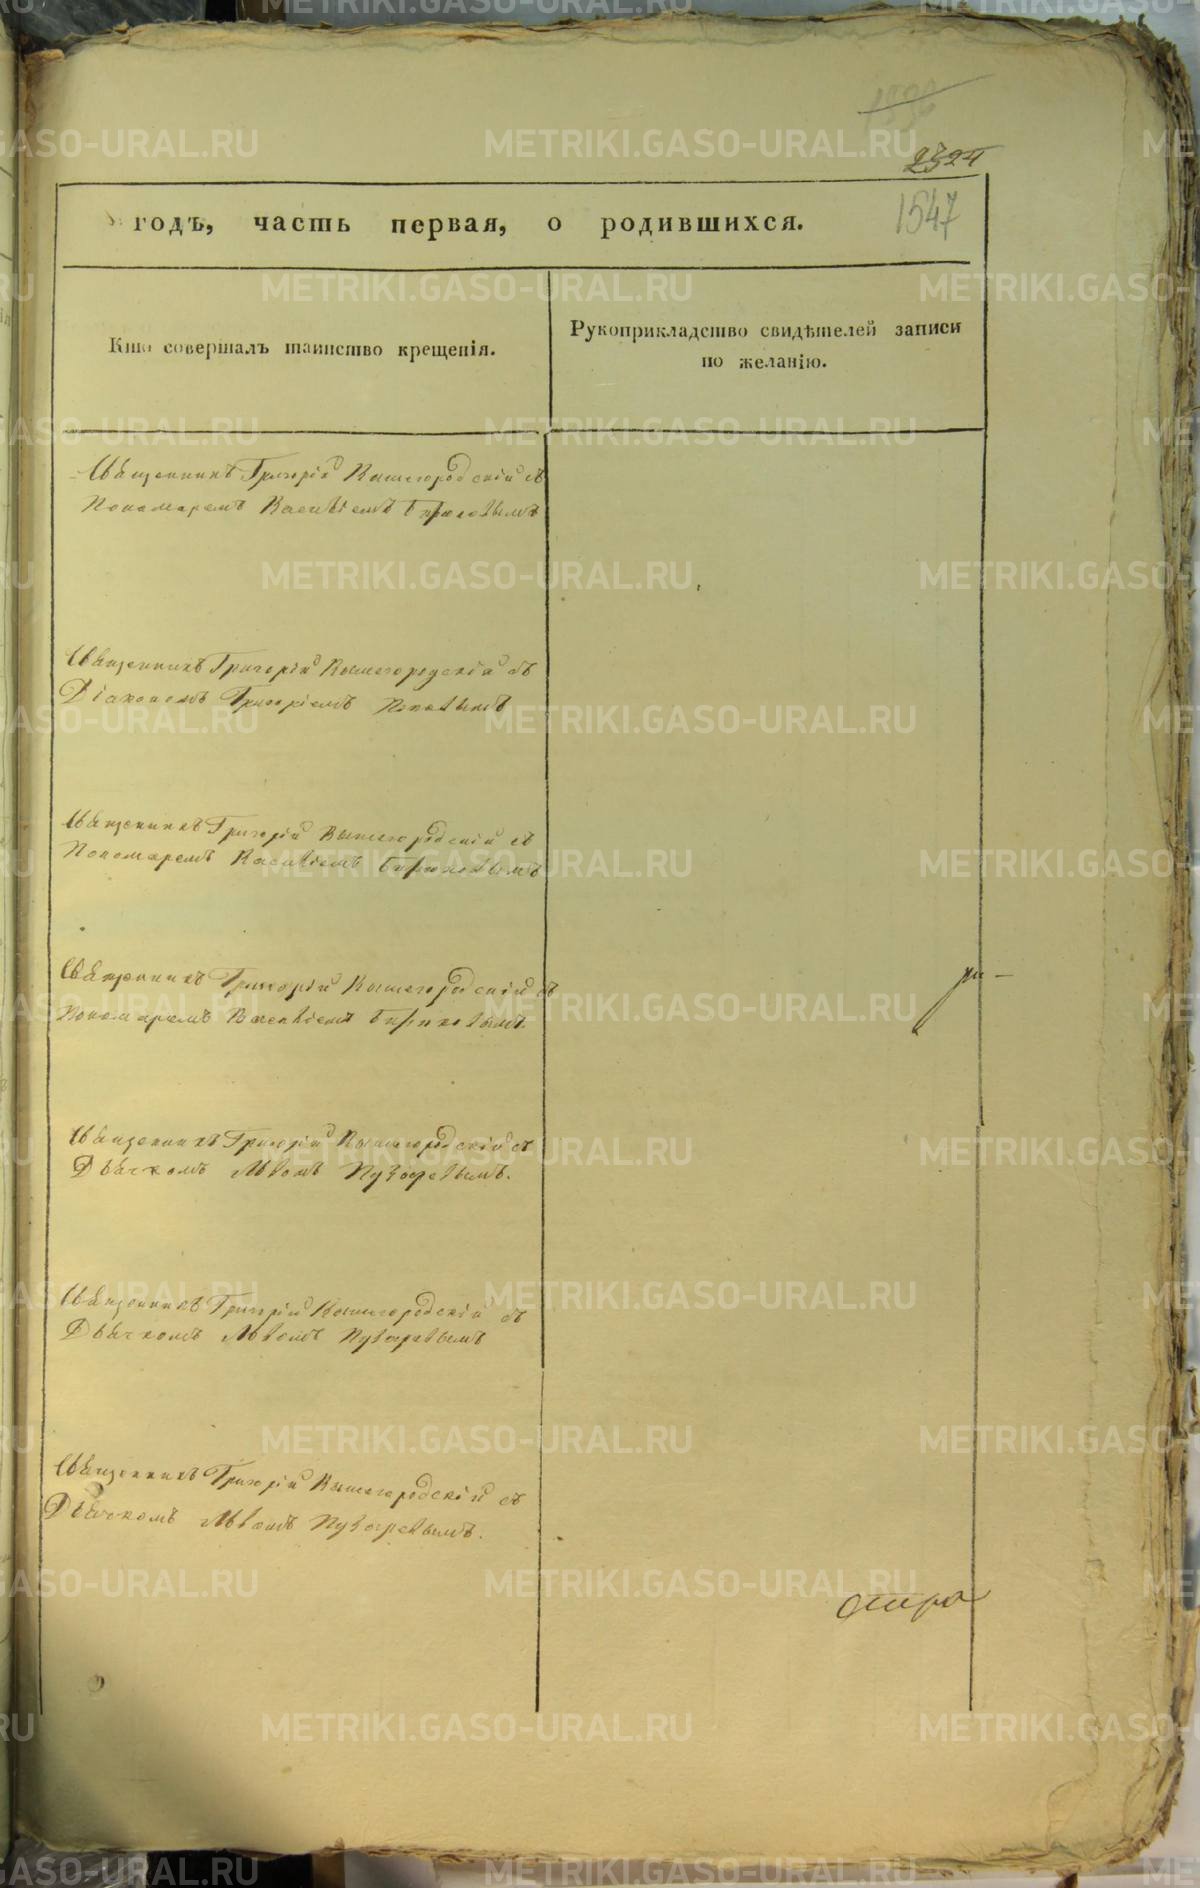 1536
2324
1547
годъ, часть первая, о родившихся.
Кто совершалъ таинство крещенія.
Рукоприкладство свидѣтелей записи
по желанію.
Священникъ Григорій Вышегородскій съ
Пономаремъ Василіемъ Бирюковымъ
Священникъ Григорій Вышегородскій съ
Діакономъ Григоріемъ Поповымъ
Священникъ Григорій Вышегородскій съ
Пономаремъ Василіемъ Бирюковымъ
Священникъ Григорій Вышегородскій съ
Пономаремъ Василіемъ Бирюковымъ.
Священникъ Григорій Вышегородскій съ
Дьячкомъ Львомъ Пузыревымъ.
Священникъ Григорій Вышегородскій съ
Дьячкомъ Львомъ Пузыревымъ
Священникъ Григорій Вышегородскій съ
Дьячкомъ Львомъ Пузыревымъ.
METRIKI.GASO-URAL.RU